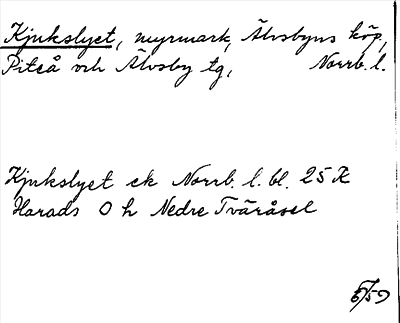 Kjukslyet, myrmark, Älvsbyns köp,
Piteå och Älvsby tg, Norrb. l.
Kjukslyet ek Norrb. l. bl. 25 K
Harads O h Nedre Tväråsel